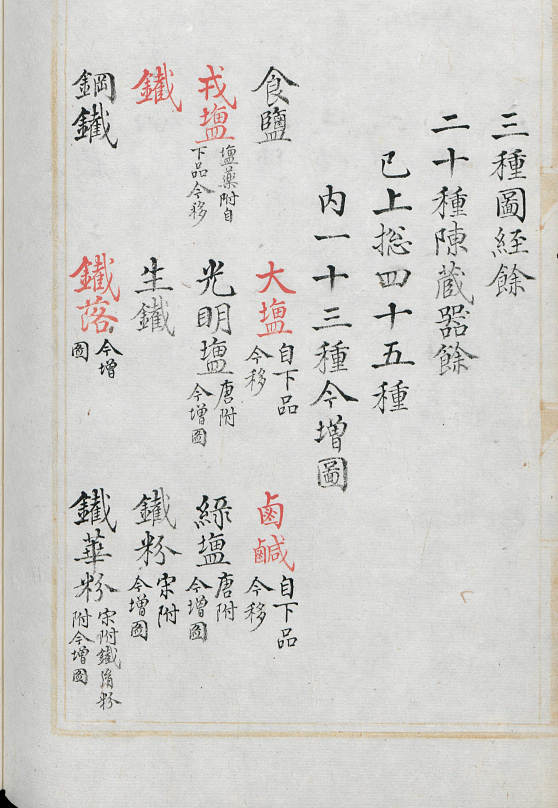 三種圖経餘
二十種陳蔵器餘
已上捴四十五種
内一十三種今增圖
食鹽
大塩 自下品今移
鹵鹹 自下品今移
戎塩 塩藥附自下品今移
光明塩 唐附今增圖
綠塩 唐附今增圖
鐵
生鐵
鐵粉 宋附今增圖
鋼鐵
鐵落 今增圖
鐵華粉 宋附鐵𦙶粉附今增圖